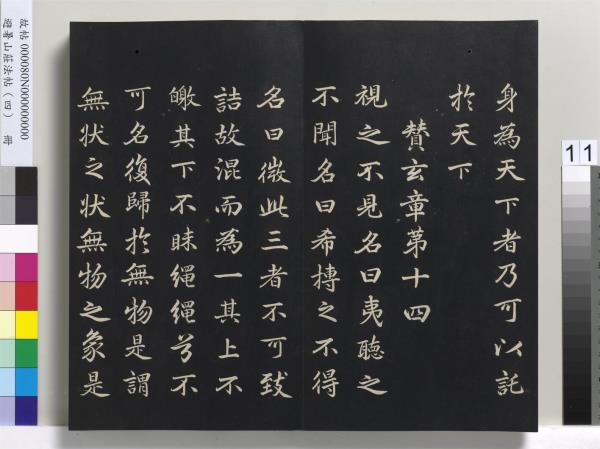 身為天下者乃可以託
於天下
贊玄章第十四
視之不見名曰夷聽之
不聞名曰希摶之不得
名曰微此三者不可致
詰故混而為一其上不
皦其下不昧繩繩兮不
可名復歸於無物是謂
無狀之狀無物之象是
故帖 000080N000000000
避暑山莊法帖（四） 冊
11